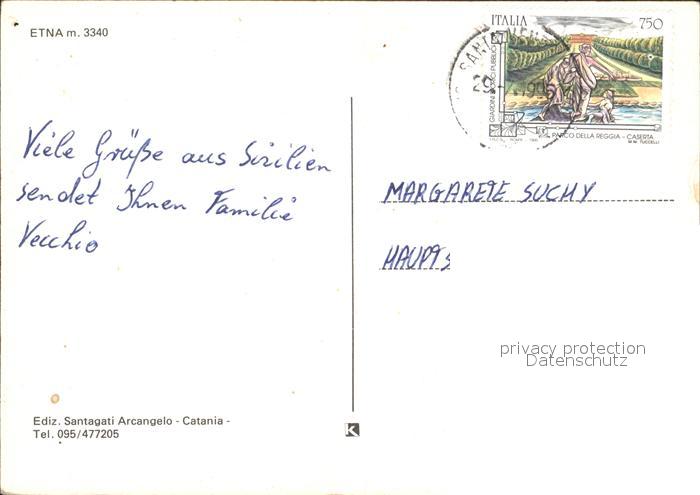 ETNA m. 3340
ITALIA 750
GIARDINI STORICI PUBBLICI
PARCO DELLA REGGIA - CASERTA
M.M. TUCCELLI
Viele Grüße aus Sizilien
sendet Ihnen Familie
Vecchio
MARGARETE SUCHY
HAUPTS
privacy protection
Datenschutz
Ediz. Santagati Arcangelo - Catania -
Tel. 095/477205
K